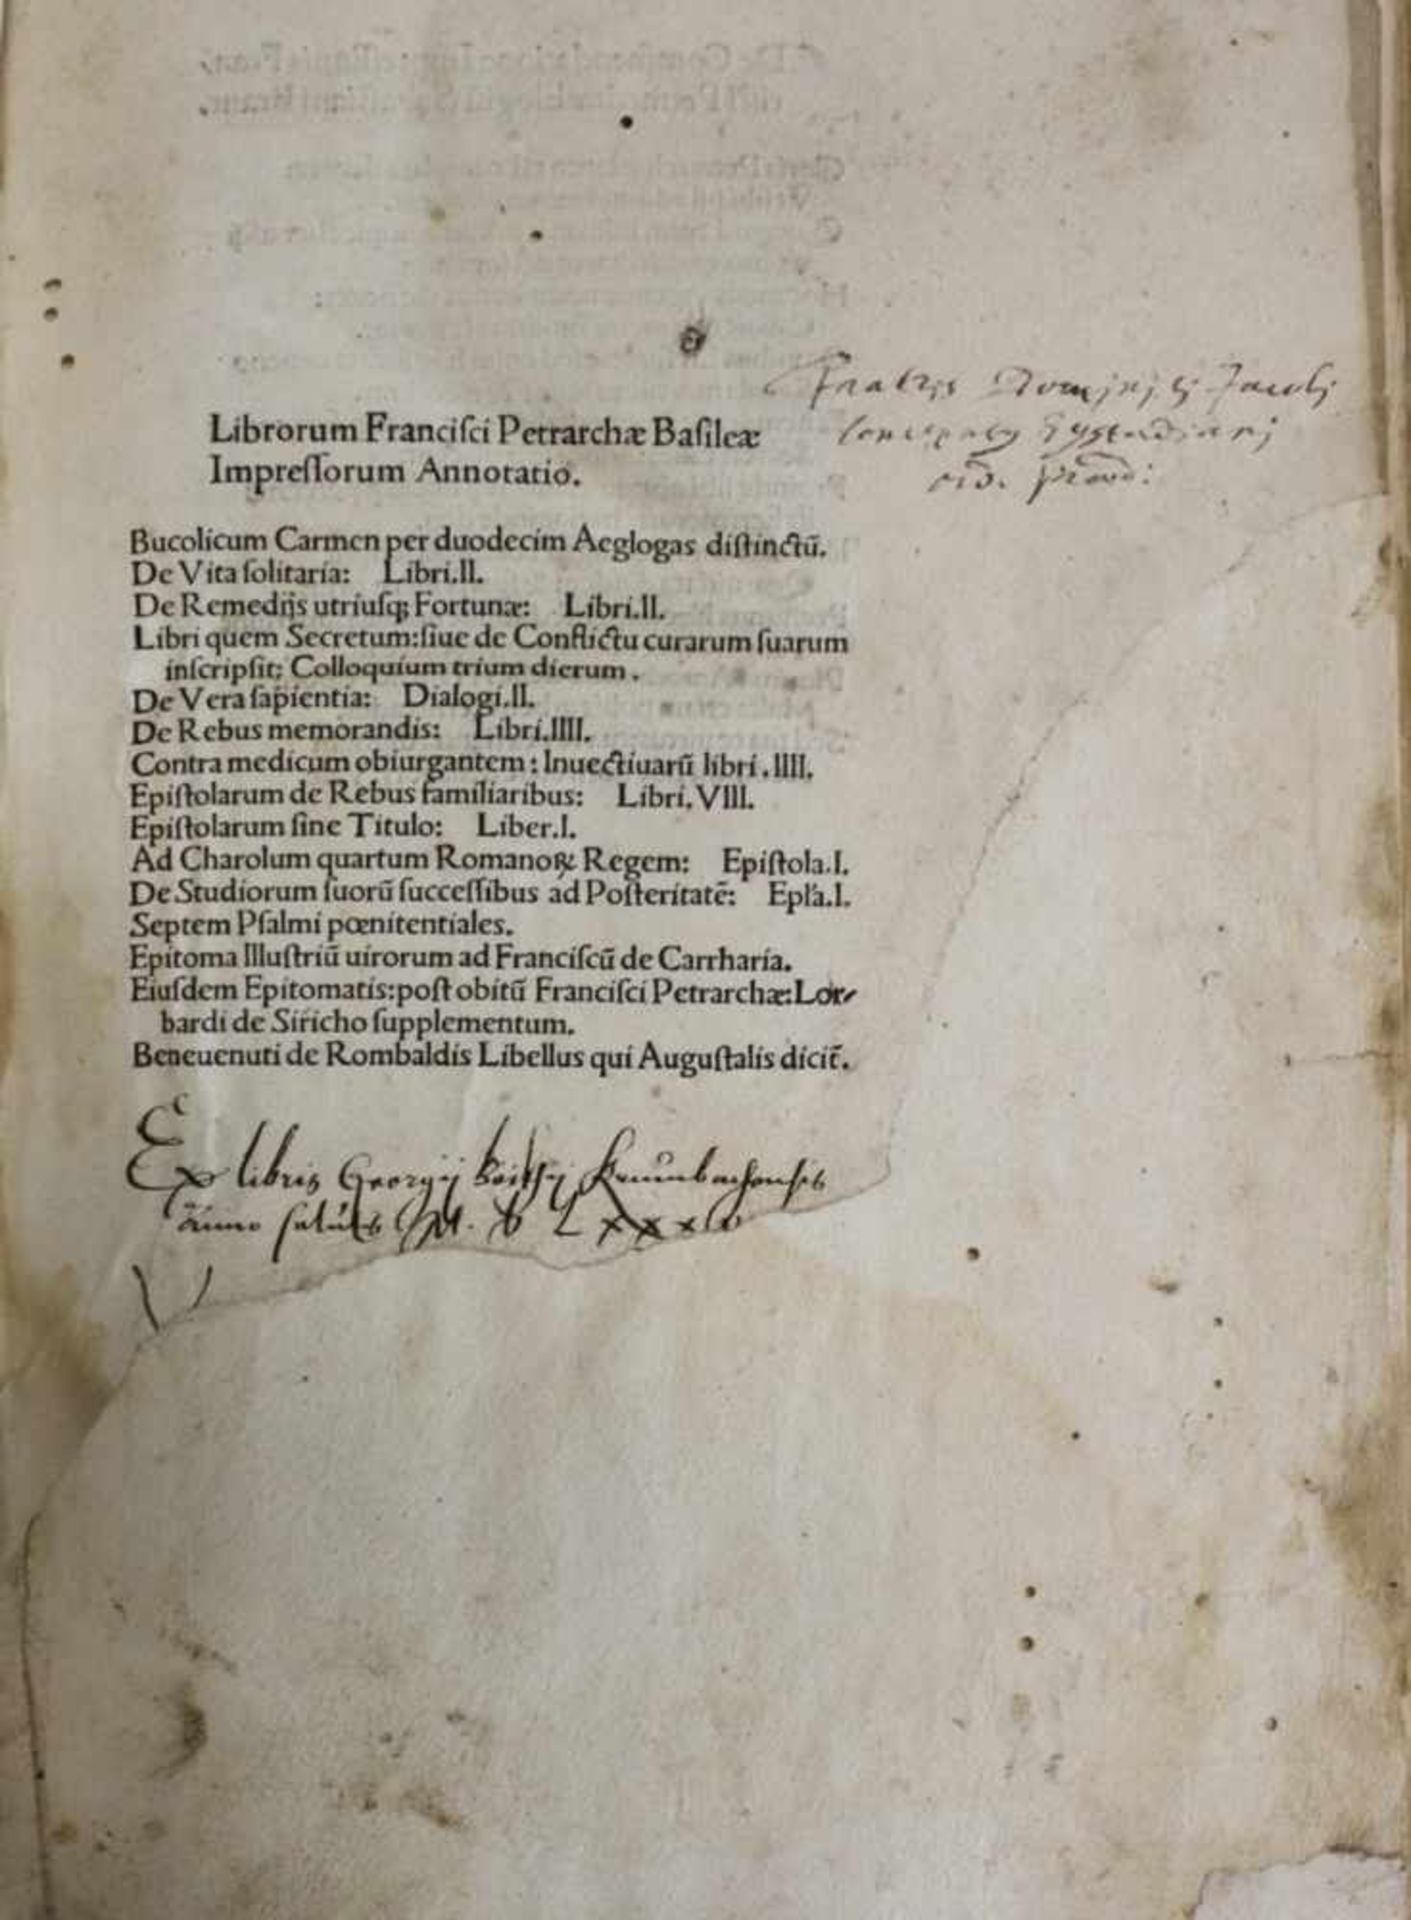 Librorum Franciſci Petrarchæ Baſileæ
Impreſſorum Annotatio.
Bucolicum Carmen per duodecim Aeglogas diſtinctũ.
De Vita ſolitaria: Libri.II.
De Remedijs utriuſqꝫ Fortunæ: Libri.II.
Libri quem Secretum:ſiue de Conflictu curarum ſuarum
inſcripſit: Colloquium trium dierum.
De Vera ſapientia: Dialogi.II.
De Rebus memorandis: Libri.IIII.
Contra medicum obiurgantem: Inuectiuarũ libri.IIII.
Epiſtolarum de Rebus familiaribus: Libri.VIII.
Epiſtolarum ſine Titulo: Liber.I.
Ad Charolum quartum Romanoꝝ Regem: Epiſtola.I.
De Studiorum ſuorũ ſucceſſibus ad Poſteritatẽ: Epľa.I.
Septem Pſalmi pœnitentiales.
Epitoma Illuſtriũ uirorum ad Franciſcũ de Carrharia.
Eiuſdem Epitomatis:poſt obitũ Franciſci Petrarchæ:Lom
bardi de Siricho ſupplementum.
Beneuenuti de Rombaldis Libellus qui Auguſtalis dicit̃.
Ex libris Georgij
anno M. D L x x x